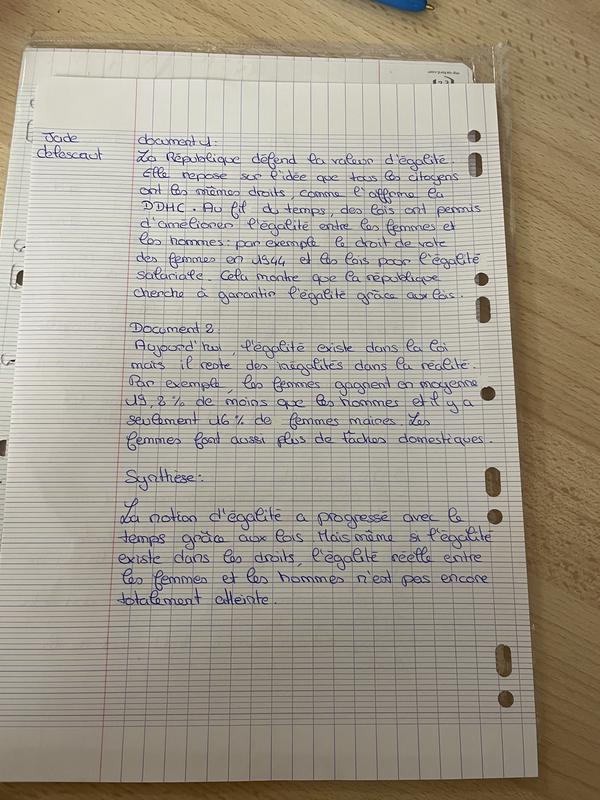 Jade
delescaut
document 1:
La République défend la valeur d'égalité.
Elle repose sur l'idée que tous les citoyens
ont les mêmes droits, comme l'affirme la
DDHC. Au fil du temps, des lois ont permis
d'améliorer l'égalité entre les femmes et
les hommes: par exemple le droit de vote
des femmes en 1944 et les lois pour l'égalité
salariale. Cela montre que la république
cherche à garantir l'égalité grâce aux lois.
Document 2.
Aujourd'hui, l'égalité existe dans la loi
mais il reste des inégalités dans la réalité.
Par exemple, les femmes gagnent en moyenne
19,2 % de moins que les hommes et il y a
seulement 16 % de femmes maires. Les
femmes font aussi plus de tâches domestiques.
Synthèse:
La notion d'égalité a progressé avec le
temps grâce aux lois Mais même si l'égalité
existe dans les droits, l'égalité réelle entre
les femmes et les hommes n'est pas encore
totalement atteinte.